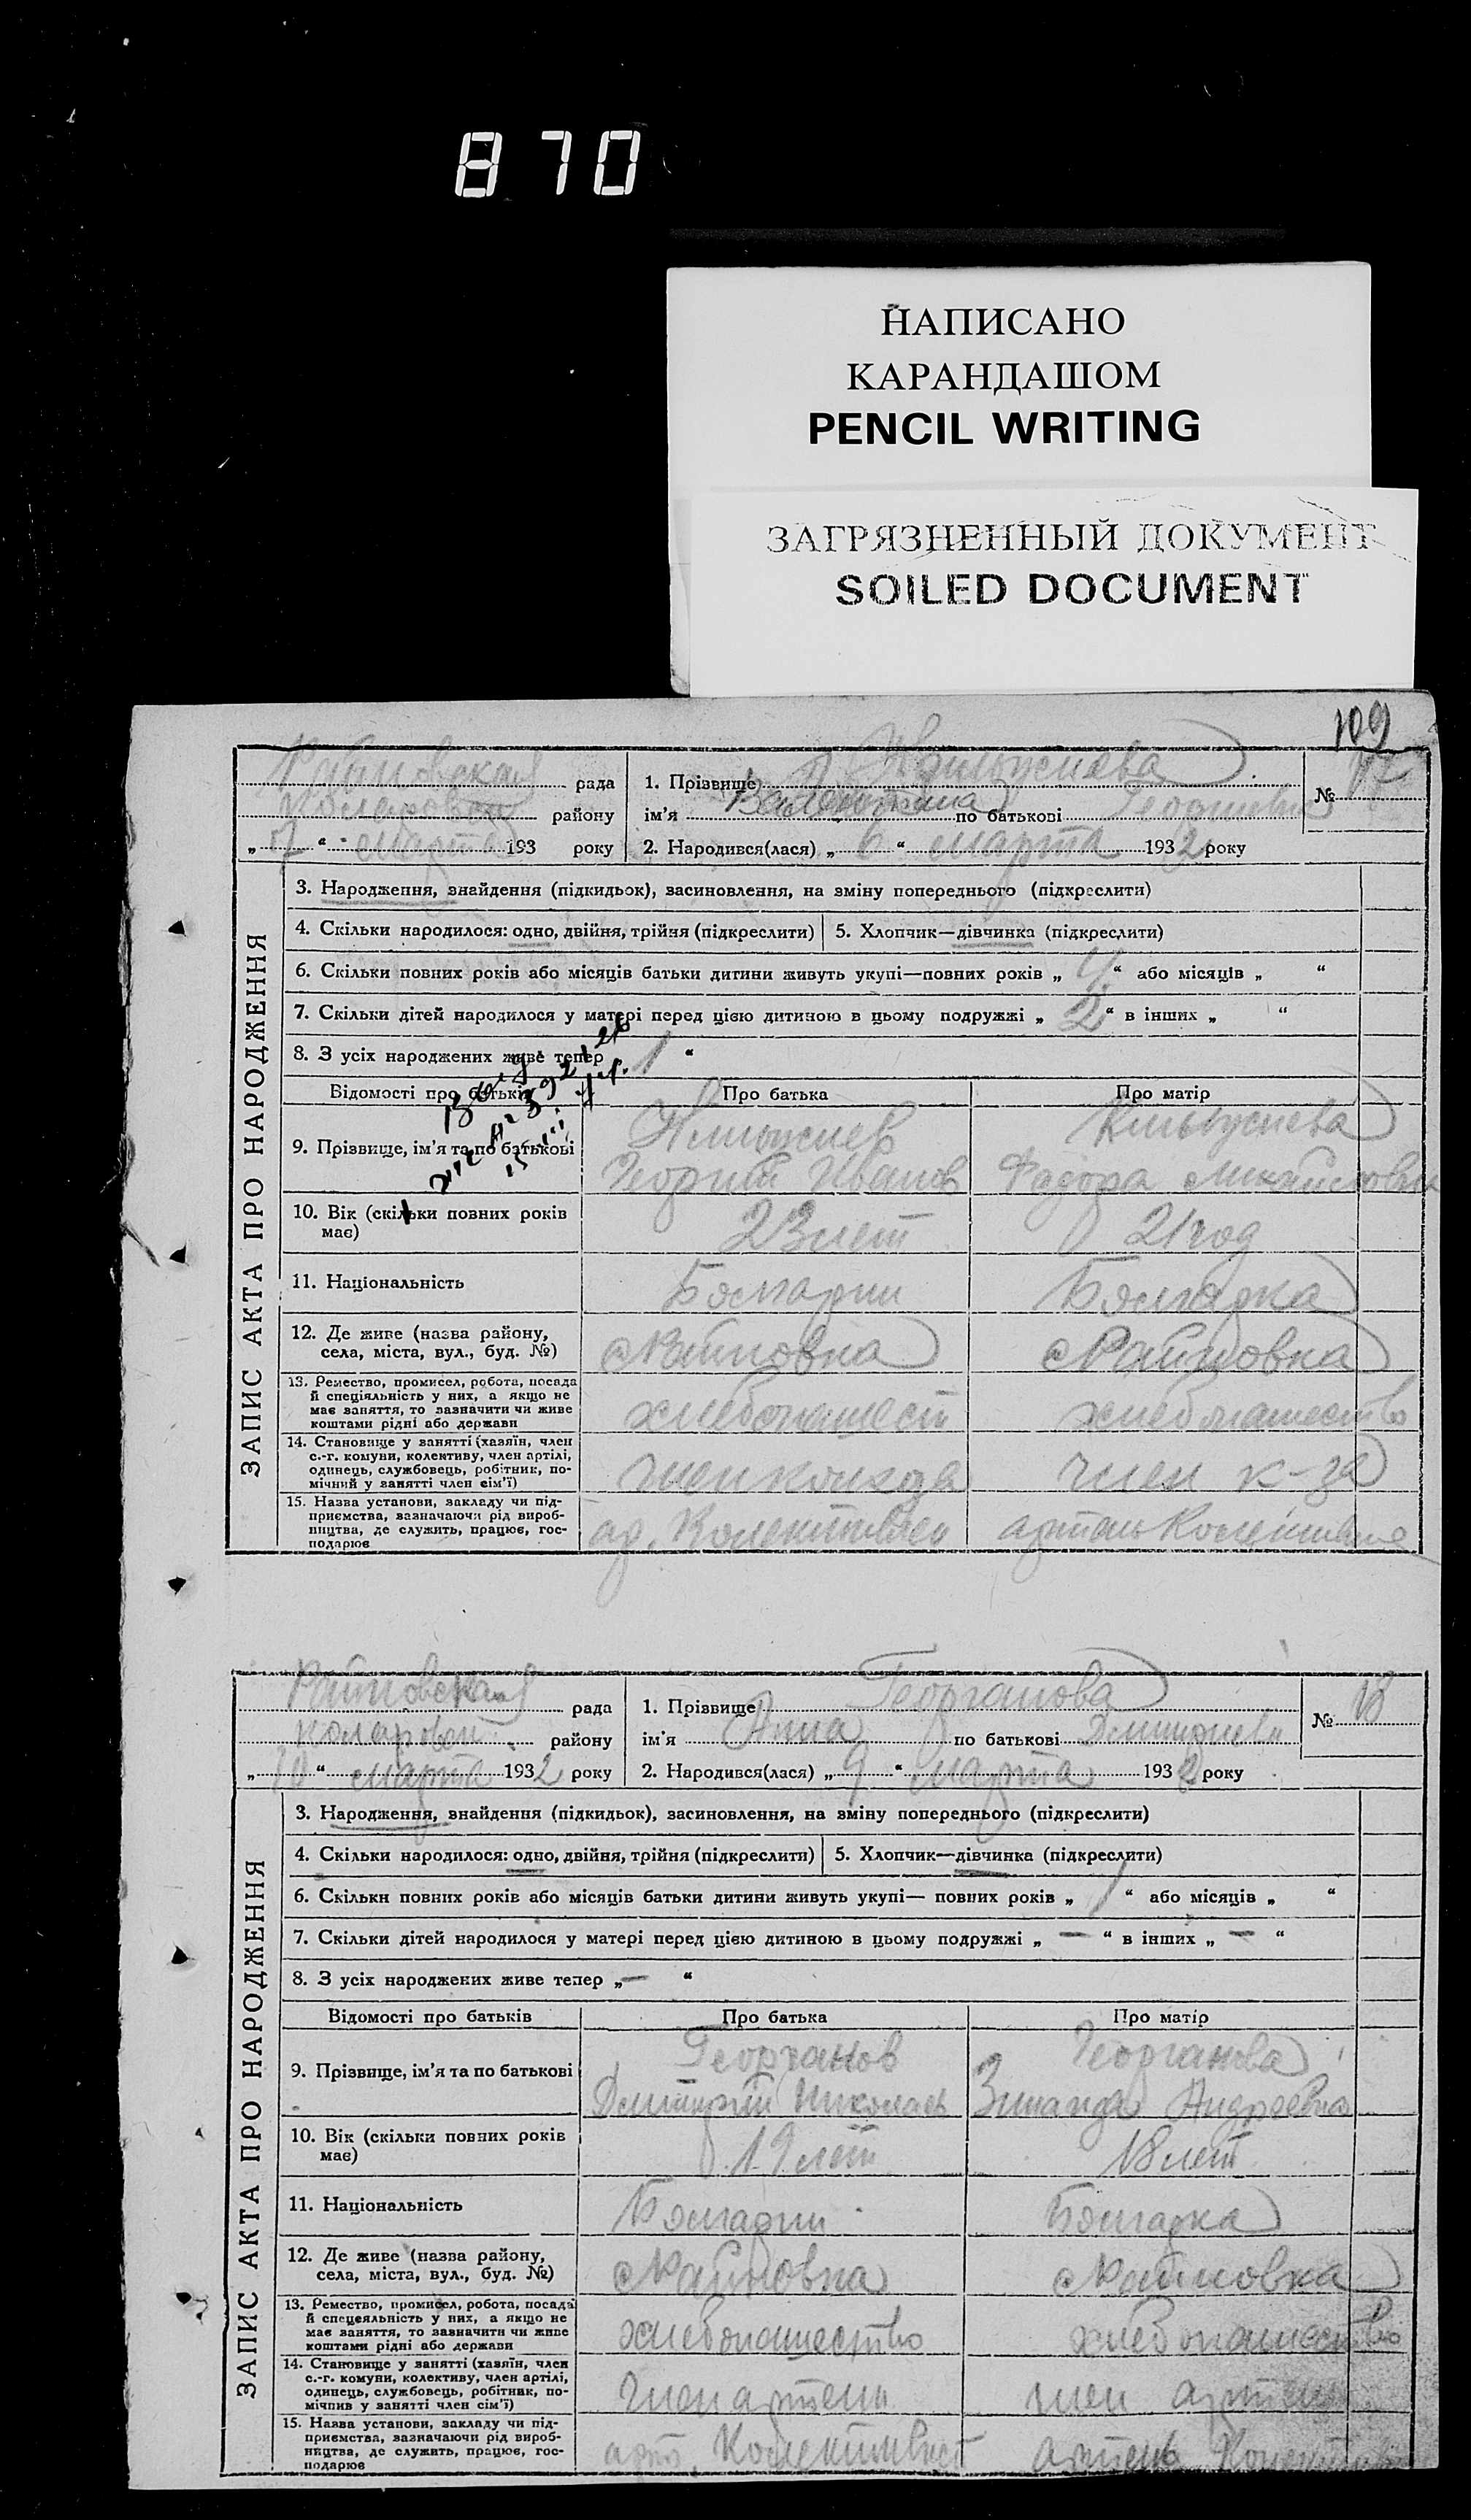 870
НАПИСАНО
КАРАНДАШОМ
PENCIL WRITING
ЗАГРЯЗНЕННЫЙ ДОКУМЕНТ
SOILED DOCUMENT
109
ЗАПИС АКТА ПРО НАРОДЖЕННЯ
Райновская рада
району
„7“ марта 193 року
1. Прізвище
ім'я Валентина по батькові Георгиевна
2. Народився(лася) „6“ марта 1932 року
№ 17
3. Народження, знайдення (підкидьок), засиновлення, на зміну попереднього (підкреслити)
4. Скільки народилося: одно, двійня, трійня (підкреслити) 5. Хлопчик—дівчинка (підкреслити)
6. Скільки повних років або місяців батьки дитини живуть укупі—повних років „4“ або місяців „ “
7. Скільки дітей народилося у матері перед цією дитиною в цьому подружжі „2“ в інших „ “
8. З усіх народжених живе тепер „1“
Відомості про батьків Про батька Про матір
9. Прізвище, ім'я та по батькові
Георгий Иванов
10. Вік (скільки повних років має) 23 лет 21 год
11. Національність Болгарин Болгарка
12. Де живе (назва району, села, міста, вул., буд. №) с Райновка с Райновка
13. Ремество, промисел, робота, посада
й спеціяльність у них, а якщо не
має заняття, то зазначити чи живе
коштами рідні або держави
хлебопашест хлебопашество
14. Становище у занятті (хазяїн, член
с.-г. комуни, колективу, член артілі,
одинець, службовець, робітник, по-
мічний у занятті член сім'ї)
член колхоза член к-за
15. Назва установи, закладу чи під-
приємства, зазначаючи рід вироб-
ництва, де служить, працює, гос-
подарює
ар. артель
ЗАПИС АКТА ПРО НАРОДЖЕННЯ
Райновская рада
Коларовск. району
„10“ марта 1932 року
1. Прізвище Георганова
ім'я Анна по батькові Дмитриевн
2. Народився(лася) „9“ марта 1932 року
№ 18
3. Народження, знайдення (підкидьок), засиновлення, на зміну попереднього (підкреслити)
4. Скільки народилося: одно, двійня, трійня (підкреслити) 5. Хлопчик—дівчинка (підкреслити)
6. Скільки повних років або місяців батьки дитини живуть укупі— повних років „1“ або місяців „ “
7. Скільки дітей народилося у матері перед цією дитиною в цьому подружжі „—“ в інших „—“
8. З усіх народжених живе тепер „—“
Відомості про батьків Про батька Про матір
9. Прізвище, ім'я та по батькові
Георганов Георганова
Дмитрий Николаев Зинаида Андреевна
10. Вік (скільки повних років має) 19 лет 18 лет
11. Національність Болгарин Болгарка
12. Де живе (назва району, села, міста, вул., буд. №) с Райновка с Райновка
13. Ремество, промисел, робота, посада
й спецеяльність у них, а якщо не
має заняття, то зазначити чи живе
коштами рідні або держави
хлебопашество хлебопашество
14. Становище у занятті (хазяїн, член
с.-г. комуни, колективу, член артілі,
одинець, службовець, робітник, по-
мічнив у занятті член сім'ї)
член артели член артели
15. Назва установи, закладу чи під-
приємства, зазначаючи рід вироб-
ництва, де служить, працює, гос-
подарює
арт. Колективист артель